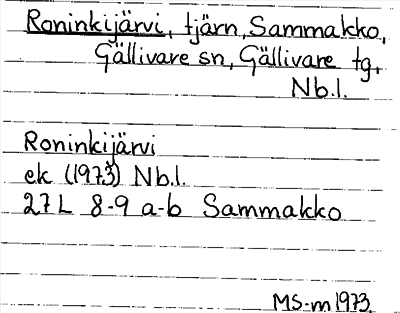 Roninkijärvi, tjärn, Sammakko,
Gällivare sn, Gällivare tg,
Nb.l.
Roninkijärvi
ek (1973) Nb.l.
27L 8-9 a-b Sammakko
MS-m 1973.